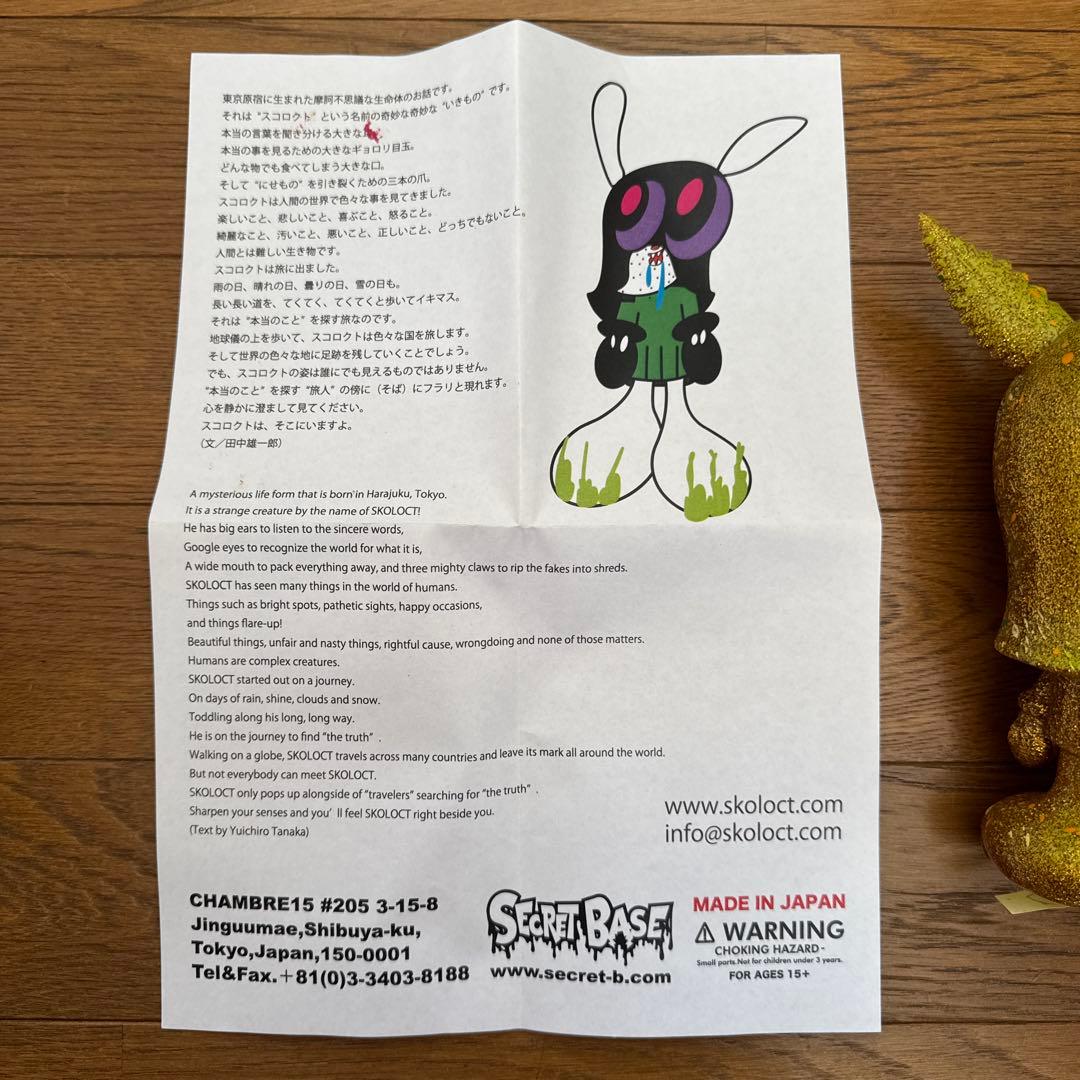 東京原宿に生まれた摩訶不思議な生命体のお話です。
それは "スコロクト" という名前の奇妙な奇妙な "いきもの" です。
本当の言葉を聞き分ける大きな
本当の事を見るための大きなギョロリ目玉。
どんな物でも食べてしまう大きな口。
そして "にせもの" を引き裂くための三本の爪。
スコロクトは人間の世界で色々な事を見てきました。
楽しいこと、悲しいこと、喜ぶこと、怒ること。
綺麗なこと、汚いこと、悪いこと、正しいこと、どっちでもないこと。
人間とは難しい生き物です。
スコロクトは旅に出ました。
雨の日、晴れの日、曇りの日、雪の日も。
長い長い道を、てくてく、てくてくと歩いてイキマス。
それは "本当のこと" を探す旅なのです。
地球儀の上を歩いて、スコロクトは色々な国を旅します。
そして世界の色々な地に足跡を残していくことでしょう。
でも、スコロクトの姿は誰にでも見えるものではありません。
"本当のこと" を探す "旅人" の傍に（そば）にフラリと現れます。
心を静かに澄まして見てください。
スコロクトは、そこにいますよ。
（文／田中雄一郎）
A mysterious life form that is born in Harajuku, Tokyo.
It is a strange creature by the name of SKOLOCT!
He has big ears to listen to the sincere words,
Google eyes to recognize the world for what it is,
A wide mouth to pack everything away, and three mighty claws to rip the fakes into shreds.
SKOLOCT has seen many things in the world of humans.
Things such as bright spots, pathetic sights, happy occasions,
and things flare-up!
Beautiful things, unfair and nasty things, rightful cause, wrongdoing and none of those matters.
Humans are complex creatures.
SKOLOCT started out on a journey.
On days of rain, shine, clouds and snow.
Toddling along his long, long way.
He is on the journey to find "the truth" .
Walking on a globe, SKOLOCT travels across many countries and leave its mark all around the world.
But not everybody can meet SKOLOCT.
SKOLOCT only pops up alongside of "travelers" searching for "the truth" .
Sharpen your senses and you' ll feel SKOLOCT right beside you.
(Text by Yuichiro Tanaka)
www.skoloct.com
info@skoloct.com
CHAMBRE15 #205 3-15-8
Jinguumae,Shibuya-ku,
Tokyo,Japan,150-0001
Tel&Fax.+81(0)3-3403-8188
SECRET BASE
www.secret-b.com
MADE IN JAPAN
⚠ WARNING
CHOKING HAZARD-
Small parts.Not for children under 3 years.
FOR AGES 15+